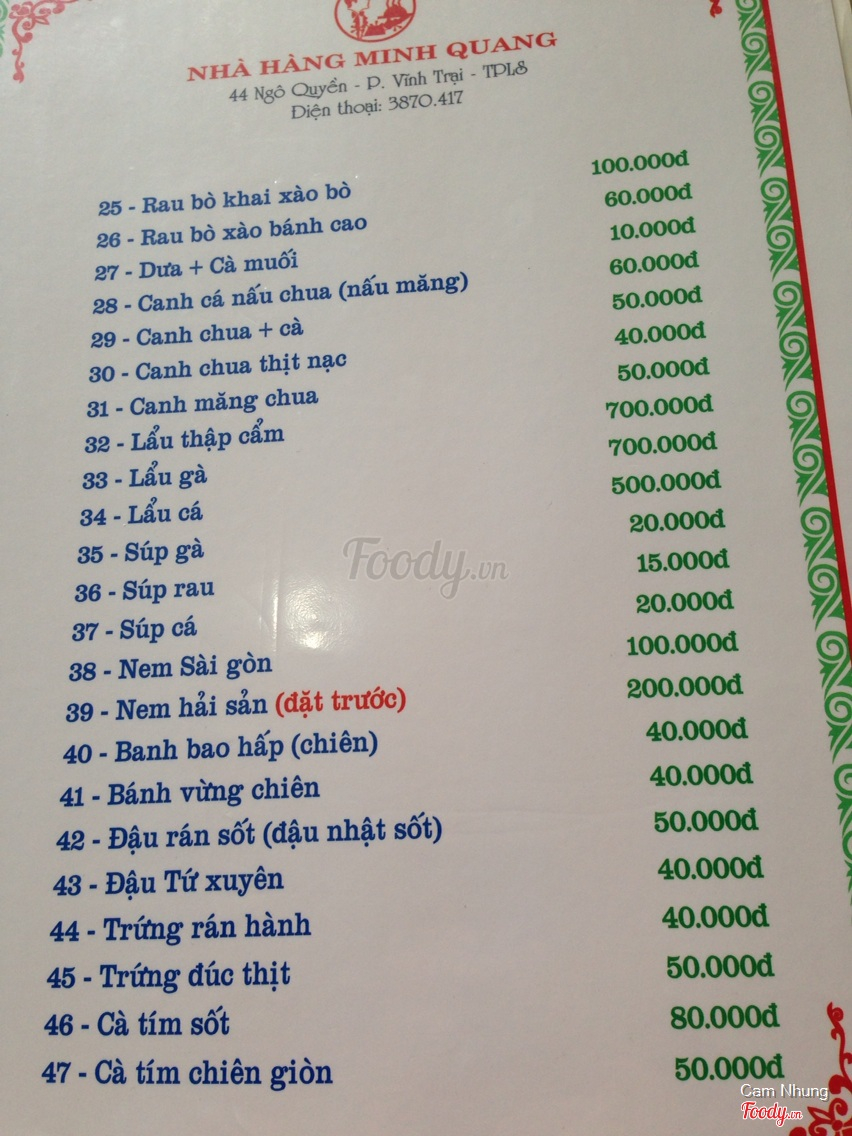 NHÀ HÀNG MINH QUANG
44 Ngô Quyền - P. Vĩnh Trại - TPLS
Điện thoại: 3870.417
25 - Rau bò khai xào bò 100.000đ
26 - Rau bò xào bánh cao 60.000đ
27 - Dưa + Cà muối 10.000đ
28 - Canh cá nấu chua (nấu măng) 60.000đ
29 - Canh chua + cà 50.000đ
30 - Canh chua thịt nạc 40.000đ
31 - Canh măng chua 50.000đ
32 - Lẩu thập cẩm 700.000đ
33 - Lẩu gà 700.000đ
34 - Lẩu cá 500.000đ
35 - Súp gà 20.000đ
36 - Súp rau 15.000đ
37 - Súp cá 20.000đ
38 - Nem Sài gòn 100.000đ
39 - Nem hải sản (đặt trước) 200.000đ
40 - Banh bao hấp (chiên) 40.000đ
41 - Bánh vừng chiên 40.000đ
42 - Đậu rán sốt (đậu nhật sốt) 50.000đ
43 - Đậu Tứ xuyên 40.000đ
44 - Trứng rán hành 40.000đ
45 - Trứng đúc thịt 50.000đ
46 - Cà tím sốt 80.000đ
47 - Cà tím chiên giòn 50.000đ
Foody.vn
Cam Nhung
Foody.vn